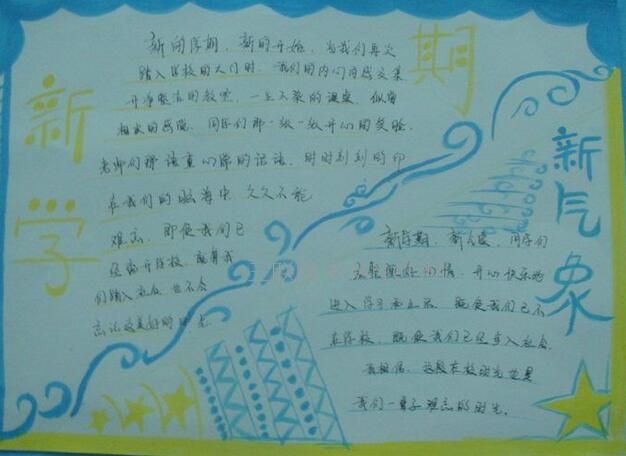 新学期
新气象
新的学期，新的开始，当我们再次
踏入学校的大门时，我们的内心百感交集
干净整洁的教室，一尘不染的课桌，似曾
相识的感觉，同学们那一张一张开心的笑脸，
老师们那语重心长的话语，时时刻刻的印
在我们的脑海中，久久不能
难忘，即使我们已
经离开学校，
们踏入社会，也不会
忘记这美好的时光
新学期，新气象，同学们
开心快乐的
进入学习和生活，既使我们已不
在学校，既使我们已经步入社会，
我相信，这段在校时光也是
我们一辈子难忘的时光。